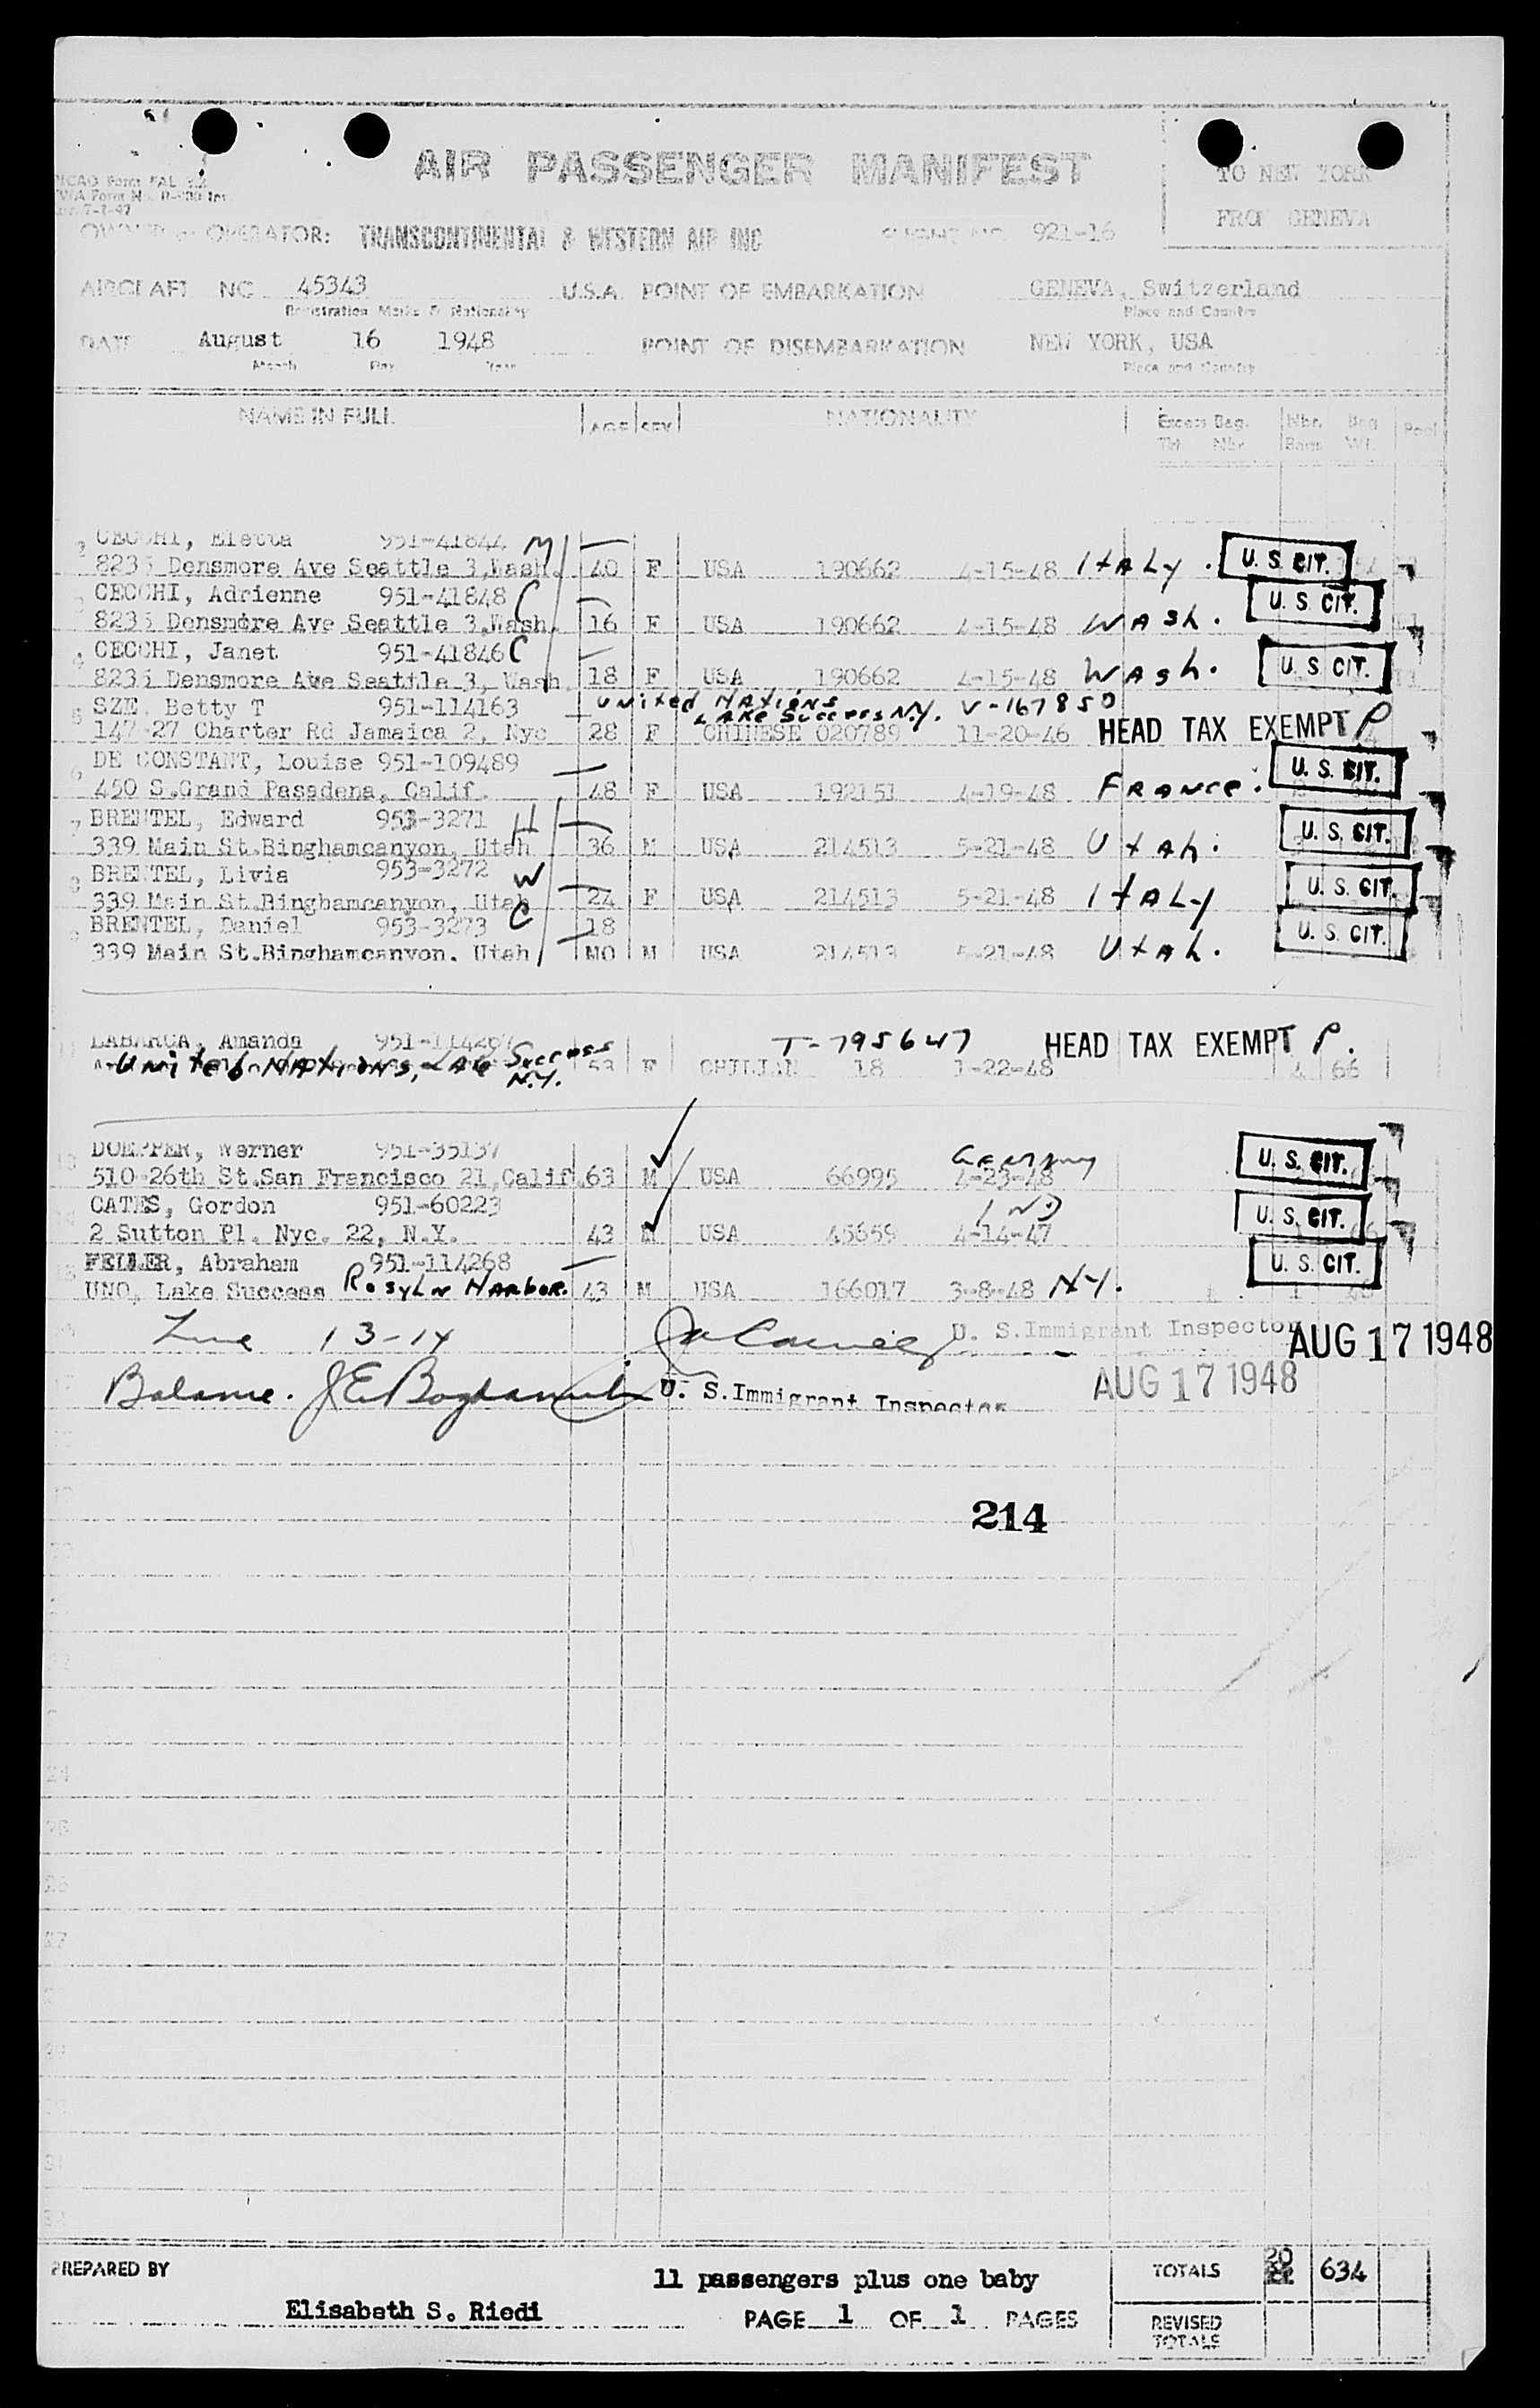 AIR PASSENGER MANIFEST
TO NEW YORK
FROM GENEVA
7-7-47
OWNER or OPERATOR: TRANSCONTINENTAL & WESTERN AIR INC 921-16
AIRCRAFT NC 45343 U.S.A. POINT OF EMBARKATION GENEVA, Switzerland
Registration Marks & Nationality Place and Country
DATE August 16 1948 POINT OF DISEMBARKATION NEW YORK, USA
Month Day Year Place and Country
NAME IN FULL AGE SEX NATIONALITY Excess Bag. Nbr. Bag Pool
Tkt Nbr. Bags Wt.
CECCHI, Eletta 951-41844 M
8235 Densmore Ave Seattle 3,Wash. 40 F USA 190662 4-15-48 ItALy. U. S. CIT.
CECCHI, Adrienne 951-41848 C
8235 Densmore Ave Seattle 3,Wash. 16 F USA 190662 4-15-48 WAsh. U. S. CIT.
CECCHI, Janet 951-41846 C
8235 Densmore Ave Seattle 3, Wash 18 F USA 190662 4-15-48 WAsh. U. S. CIT.
SZE, Betty T 951-114163 United NAtions LAKe Success N.Y. V-167850
147-27 Charter Rd Jamaica 2, Nyc 28 F CHINESE 020789 11-20-46 HEAD TAX EXEMPT P
DE CONSTANT, Louise 951-109489
450 S.Grand Pasadena, Calif. 48 F USA 192151 4-19-48 FRANce. U. S. CIT.
BRENTEL, Edward 953-3271 H
339 Main St.Binghamcanyon, Utah 36 M USA 214513 5-21-48 UtAh. U. S. CIT.
BRENTEL, Livia 953-3272 W
339 Main St.Binghamcanyon, Utah 24 F USA 214513 5-21-48 ItALy U. S. CIT.
BRENTEL, Daniel 953-3273 C 18
339 Main St.Binghamcanyon. Utah MO M USA 214513 5-21-48 UtAh. U. S. CIT.
LABARCA, Amanda 951-114267 T-795647 HEAD TAX EXEMPT P.
United NAtions, LAKe Success N.Y. 53 F CHILIAN 18 1-22-48 4 66
DOEPPER, Werner 951-35137 Germany
510-26th St.San Francisco 21,Calif. 63 M USA 66995 4-23-48 U. S. CIT.
CATES, Gordon 951-60223 IND
2 Sutton Pl. Nyc. 22, N.Y. 43 M USA 45659 4-14-47 U. S. CIT.
FELLER, Abraham 951-114268
UNO, Lake Success RosyLn HARboR. 43 M USA 166017 3-8-48 N.Y. U. S. CIT.
Line 13-14 U. S.Immigrant Inspector AUG 17 1948
Balance. U. S.Immigrant Inspector AUG 17 1948
214
PREPARED BY
Elisabeth S. Riedi
11 passengers plus one baby
PAGE 1 OF 1 PAGES
TOTALS 20 634
REVISED
TOTALS